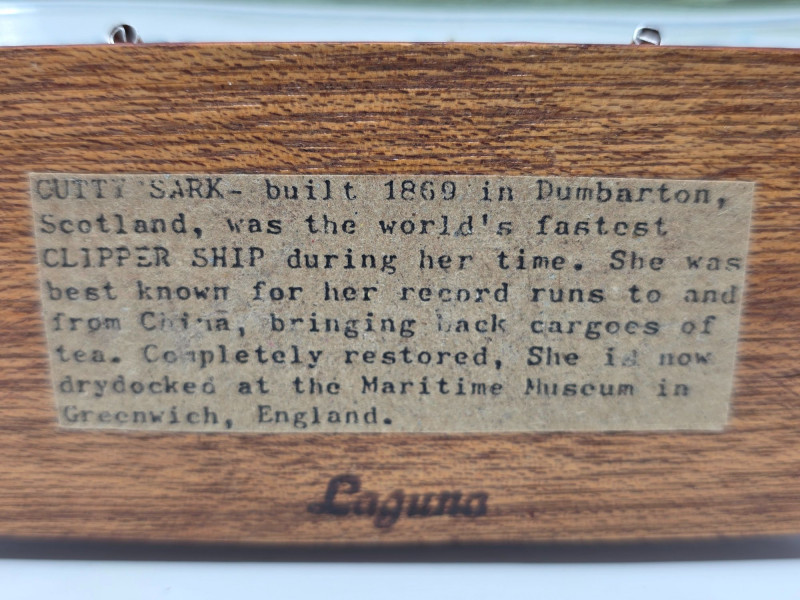 CUTTY SARK- built 1869 in Dumbarton,
Scotland, was the world's fastest
CLIPPER SHIP during her time. She was
best known for her record runs to and
from China, bringing back cargoes of
tea. Completely restored, She is now
drydocked at the Maritime Museum in
Greenwich, England.
Laguna